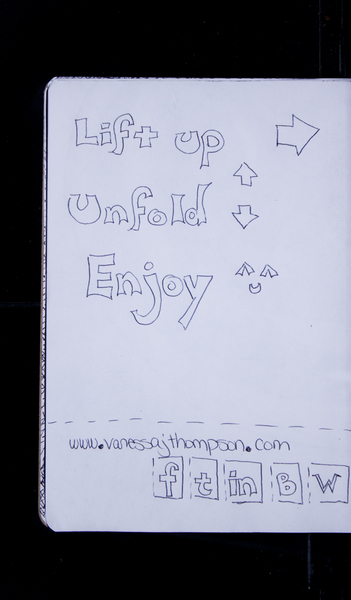 Lift up
Unfold
Enjoy
www.vanessajthompson.com
f t in B W